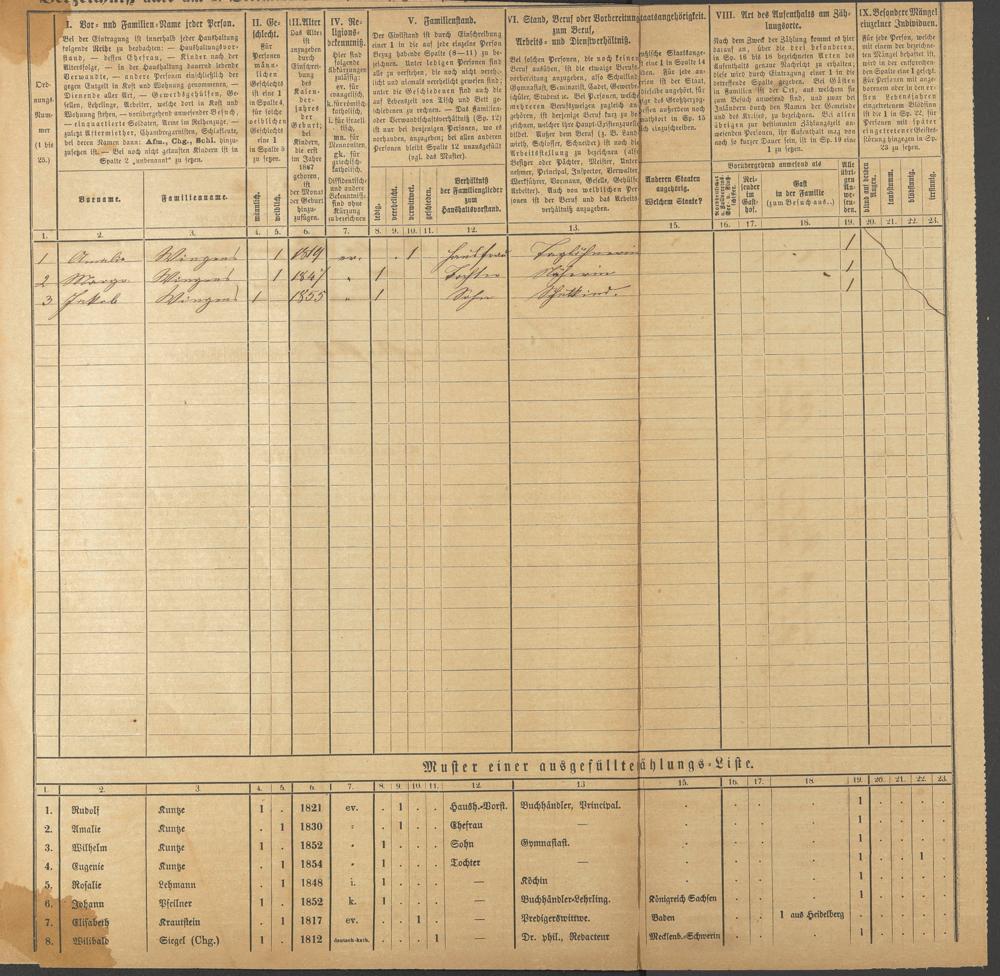 I. Vor- und Familien-Name jeder Person.
Bei der Eintragung ist innerhalb jeder Haushaltung
folgende Reihe zu beobachten: — Haushaltungsvor-
stand, — dessen Ehefrau, — Kinder nach der
Altersfolge, — in der Haushaltung dauernd lebende
Verwandte, — andere Personen einschließlich der
gegen Entgelt in Kost und Wohnung genommenen, —
Dienende aller Art, — Gewerbsgehülfen, Ge-
sellen, Lehrlinge, Arbeiter, welche dort in Kost und
Wohnung stehen, — vorübergehend anwesender Besuch,
— einquartierte Soldaten, Arme im Reihenzuge.
zuletzt Aftermiether, Chambregarnisten, Schlafleute,
bei deren Namen dann: Afm., Chg., Schl. hinzu-
zusetzen ist. — Bei noch nicht getauften Kindern ist in
Spalte 2 „unbenannt" zu setzen.
Ord-
nungs-
Num-
mer
(1 bis
25.)
Vorname.
Familienname.
II. Ge-
schlecht.
Für
Personen
männ-
lichen
Geschlechts
ist eine 1
in Spalte 4,
für solche
weiblichen
Geschlechts
eine 1
in Spalte 5
zu setzen.
männlich.
weiblich.
III. Alter
Das Alter
ist
anzugeben
durch
Einschrei-
bung
des
Kalen-
der-
jahres
der
Geburt;
bei
Kindern,
die erst
im Jahre
1867
geboren,
ist
der Monat
der Geburt
hinzu-
zufügen.
IV. Re-
ligions-
bekenntniß.
Hier sind
folgende
Abkürzungen
zulässig:
ev. für
evangelisch,
k. für römisch-
katholisch,
i. für israeli-
tisch,
mn. für
Mennoniten,
gk. für
griechisch-
katholisch.
Dissidentische
und andere
Bekenntnisse
sind ohne
Kürzung
zu bezeichnen
V. Familienstand.
Der Civilstand ist durch Einschreibung
einer 1 in die auf jede einzelne Person
Bezug habende Spalte (8—11) zu be-
zeichnen. Unter ledigen Personen sind
alle zu verstehen, die noch nicht vereh-
licht und niemals verehelicht gewesen sind;
unter die Geschiedenen sind auch die
auf Lebenszeit von Tisch und Bett ge-
schiedenen zu rechnen. — Das Familien-
oder Verwandtschaftsverhältniß (Sp. 12)
ist nur bei denjenigen Personen, wo es
vorhanden, anzugeben; bei allen anderen
Personen bleibt Spalte 12 unausgefüllt
(vgl. das Muster).
ledig.
verehelicht.
verwittwet.
geschieden.
Verhältniß
der Familienglieder
zum
Haushaltsvorstand.
VI. Stand, Beruf oder Vorbereitung
zum Beruf,
Arbeits- und Dienstverhältniß.
Bei solchen Personen, die noch keinen
Beruf ausüben, ist die etwaige Berufs-
vorbereitung anzugeben, also Schulkind,
Gymnasiast, Seminarist, Cadet, Gewerbe-
schüler, Student u. Bei Personen, welche
mehreren Berufszweigen zugleich an-
gehören, ist derjenige Beruf kurz zu be-
zeichnen, welcher ihre Haupt-Existenzquelle
bildet. Außer dem Beruf (z. B. Land-
wirth, Schlosser, Schneider) ist noch die
Arbeitsstellung zu bezeichnen (als:
Besitzer oder Pächter, Meister, Unter-
nehmer, Principal, Inspector, Verwalter,
Werkführer, Vormann, Geselle, Gehülfe,
Arbeiter). Auch von weiblichen Per-
sonen ist der Beruf und das Arbeits-
verhältniß anzugeben.
taatsangehörigkeit.
Anderen Staaten
angehörig.
Welchem Staate?
VIII. Art des Aufenthalts am Zäh-
lungsorte.
Nach dem Zweck der Zählung kommt es hier
darauf an, über die drei besonderen,
in Sp. 16 bis 18 bezeichneten Arten des
Aufenthalts genaue Nachricht zu erhalten;
diese wird durch Eintragung einer 1 in die
betreffende Spalte gegeben. Bei Gästen
in Familien ist der Ort, aus welchem sie
zum Besuch anwesend sind, und zwar bei
Inländern durch den Namen der Gemeinde
und des Kreises, zu bezeichnen. Bei allen
übrigen zur bestimmten Zählungszeit an-
wesenden Personen, ihr Aufenthalt mag von
noch so kurzer Dauer sein, ist in Sp. 19 eine
1 zu setzen.
Vorübergehend anwesend als
Rei-
sender
im
Gast-
hof.
Gast
in der Familie
(zum Besuch aus..)
Alle
übri-
gen
An-
we-
sen-
den.
IX. Besondere Mängel
einzelner Individuen.
Für jede Person, welche
mit einem der bezeichne-
ten Mängel behaftet ist,
wird in der entsprechen-
den Spalte eine 1 gesetzt.
Für Personen mit ange-
borenem oder in den er-
sten Lebensjahren
eingetretenem Blödsinn
ist die 1 in Sp. 22, für
Personen mit später
eingetretener Geistes-
störung hingegen in Sp.
23 zu setzen.
blind auf beiden Augen.
taubstumm.
blödsinnig.
irrsinnig.
1. 2. 3. 4. 5. 6. 7. 8. 9. 10. 11. 12. 13. 15. 16. 17. 18. 19. 20. 21. 22. 23.
1 Amalie Winzens 1 1819 ev. 1 Hausfrau Taglöhnerin 1
2 Marga Winzens 1 1847 „ 1 Tochter Näherin 1
3 Jakob Winzens 1 1855 „ 1 Sohn Schulkind. 1
Muster einer ausgefüllte ählungs-Liste.
1. 2. 3. 4. 5. 6. 7. 8. 9. 10. 11. 12. 13 15. 16. 17. 18. 19. 20. 21. 22. 23.
1. Rudolf Kuntze 1 . 1821 ev. . 1 . . Haush.-Vorst. Buchhändler, Principal. . . . . 1 . . . .
2. Amalie Kuntze . 1 1830 " . 1 . . Ehefrau — . . . . 1 . . . .
3. Wilhelm Kuntze 1 . 1852 " 1 . . . Sohn Gymnasiast. . . . . 1 . . . .
4. Eugenie Kuntze . 1 1854 " 1 . . . Tochter — . . . . 1 . . 1 .
5. Rosalie Lehmann . 1 1848 i. 1 . . . — Köchin . . . . 1 . . . .
6. Johann Pfeilner 1 . 1852 k. 1 . . . — Buchhändler-Lehrling. Königreich Sachsen . . . 1 . . . .
7. Elisabeth Krautstein . 1 1817 ev. . . 1 . — Predigerswittwe. Baden . . 1 aus Heidelberg . . . . .
8. Wilibald Siegel (Chg.) 1 . 1812 deutsch-kath. . . . 1 — Dr. phil., Redacteur Mecklenb.-Schwerin . . . 1 . . . .